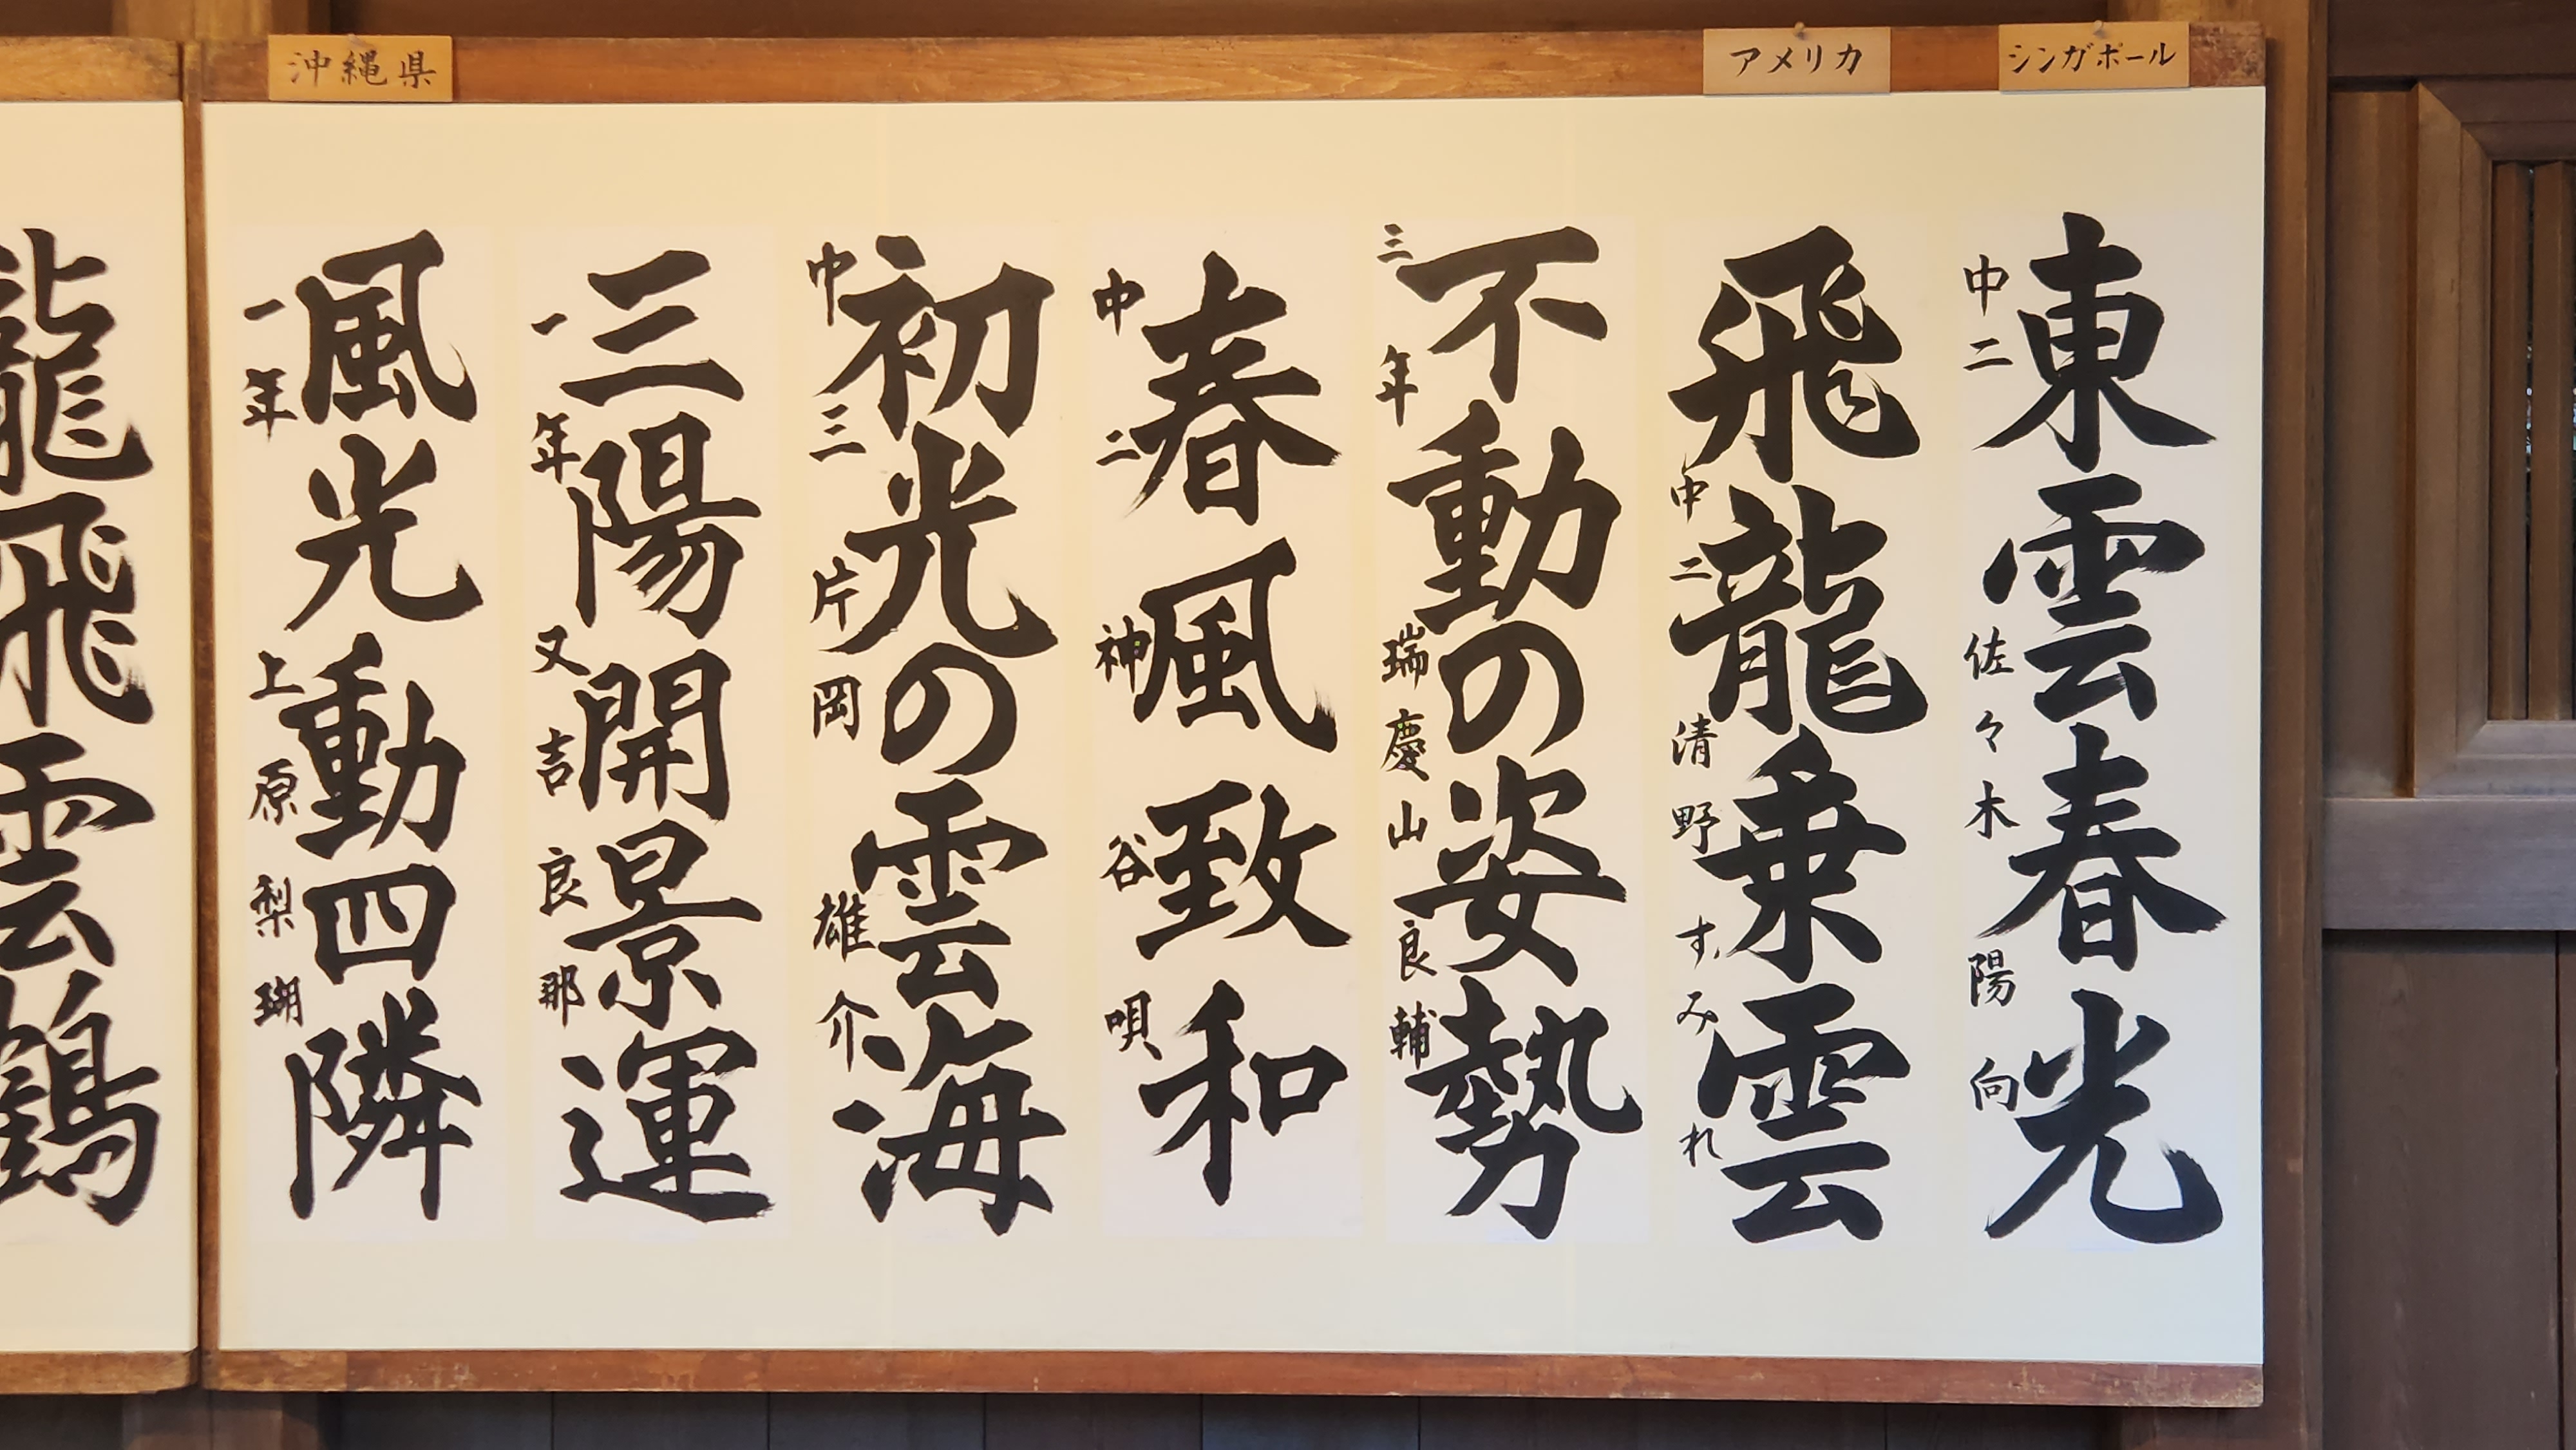 シンガポール
アメリカ
沖縄県
東雲春光
中二 佐々木 陽向
飛龍乗雲
中二 清野 すみれ
不動の姿勢
三年 瑞慶山 良輔
春風致和
中二 神谷 唄
初光の雲海
中三 片岡 雄介
三陽開景運
一年 又吉 良那
風光動四隣
一年 上原 梨瑚
龍飛雲鶴